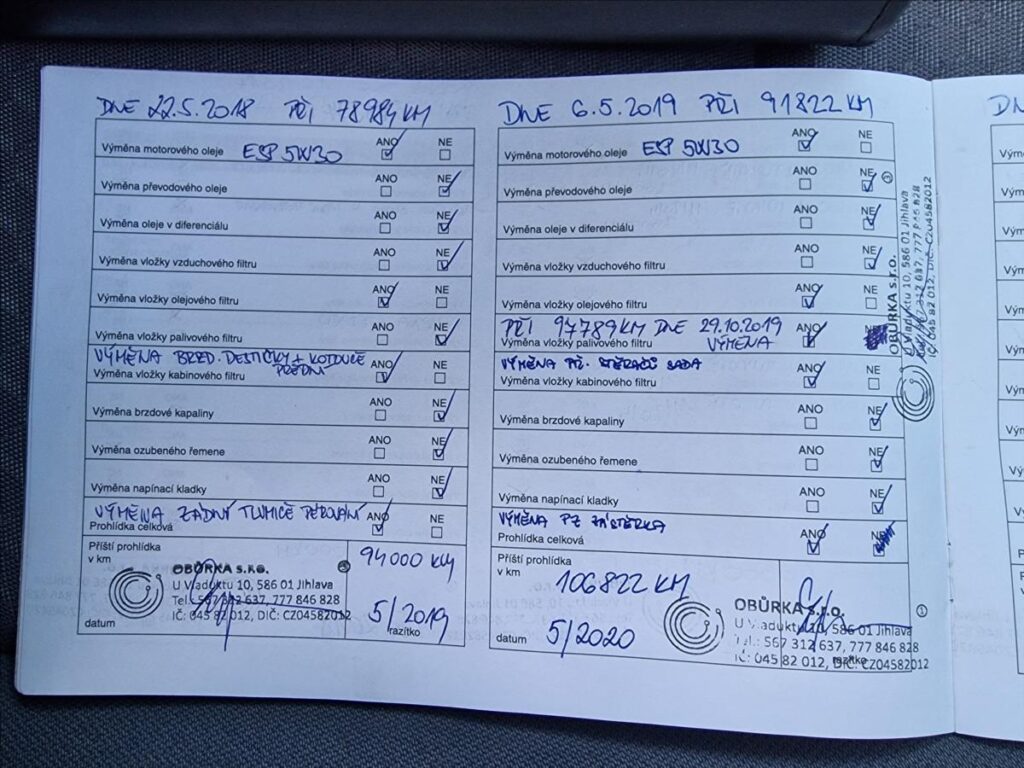 DNE 22.5.2018 PŘI 78984 KM
Výměna motorového oleje ESP 5W30 ANO NE
Výměna převodového oleje ANO NE
Výměna oleje v diferenciálu ANO NE
Výměna vložky vzduchového filtru ANO NE
Výměna vložky olejového filtru ANO NE
Výměna vložky palivového filtru ANO NE
VÝMĚNA BRZD. DESTIČKY + KOTOUČE
PŘEDNÍ
Výměna vložky kabinového filtru ANO NE
Výměna brzdové kapaliny ANO NE
Výměna ozubeného řemene ANO NE
Výměna napínací kladky ANO NE
VÝMĚNA ZADNÍ TLUMIČE PÉROVÁNÍ
Prohlídka celková ANO NE
Příští prohlídka
v km 94000 KM
OBŮRKA s.r.o.
U Viaduktu 10, 586 01 Jihlava
Tel.: 567 312 637, 777 846 828
IČ: 045 82 012, DIČ: CZ04582012
datum 5/2019
razítko
DNE 6.5.2019 PŘI 91822 KM
Výměna motorového oleje ESP 5W30 ANO NE
Výměna převodového oleje ANO NE
Výměna oleje v diferenciálu ANO NE
Výměna vložky vzduchového filtru ANO NE
Výměna vložky olejového filtru ANO NE
PŘI 97789 KM DNE 29.10.2019
Výměna vložky palivového filtru VÝMĚNA ANO
VÝMĚNA PŘ. STĚRAČŮ SADA
Výměna vložky kabinového filtru ANO NE
Výměna brzdové kapaliny ANO NE
Výměna ozubeného řemene ANO NE
Výměna napínací kladky ANO NE
VÝMĚNA PZ ZÁSTĚRKA
Prohlídka celková ANO NE
Příští prohlídka
v km 106822 KM
datum 5/2020
OBŮRKA s.r.o.
U Viaduktu 10, 586 01 Jihlava
Tel.: 567 312 637, 777 846 828
IČ: 045 82 012, DIČ: CZ04582012
razítko
OBŮRKA s.r.o.
U Viaduktu 10, 586 01 Jihlava
567 312 637, 777 846 828
IČ: 045 82 012, DIČ: CZ04582012